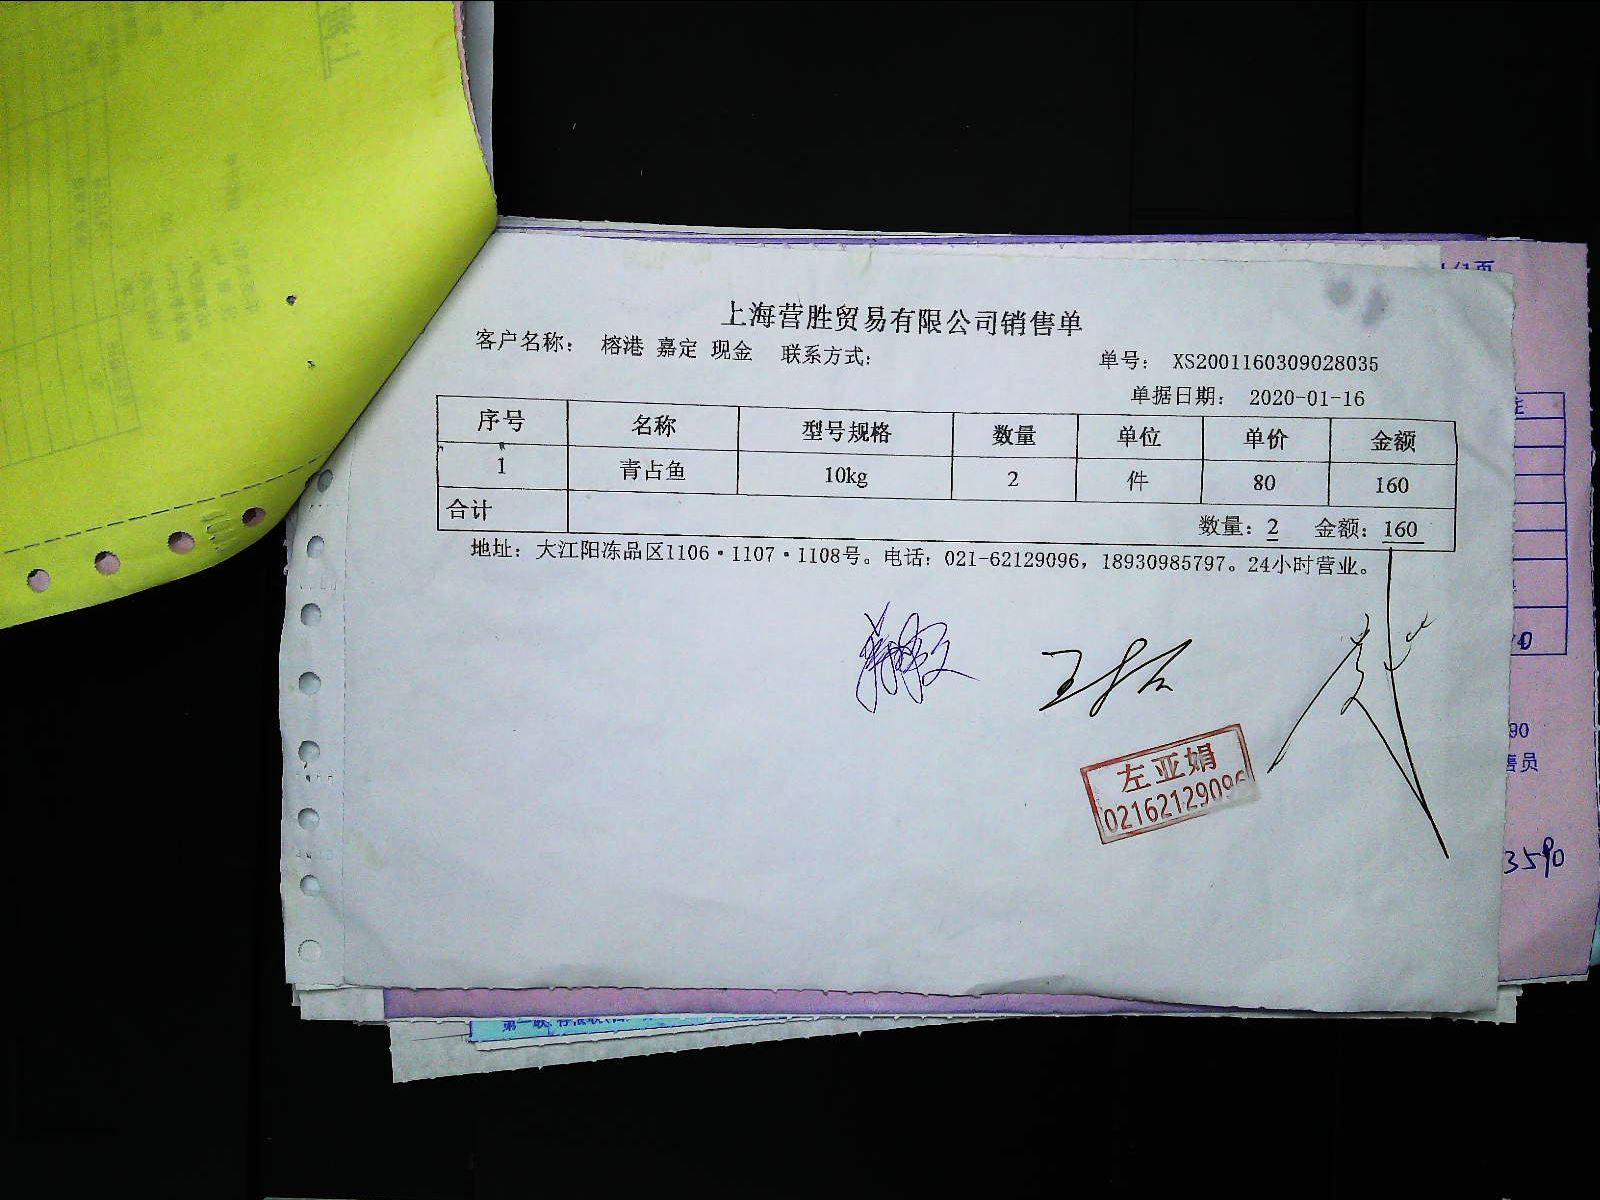 上海营胜贸易有限公司销售单
客户名称: 榕港 嘉定 现金 联系方式:
单号: XS2001160309028035
单据日期: 2020-01-16
序号 名称 型号规格 数量 单位 单价 金额
1 青占鱼 10kg 2 件 80 160
合计 数量: 2 金额: 160
地址: 大江阳冻品区1106·1107·1108号。电话: 021-62129096, 18930985797。24小时营业。
左亚娟
02162129096
1/1页
90
售员
3590